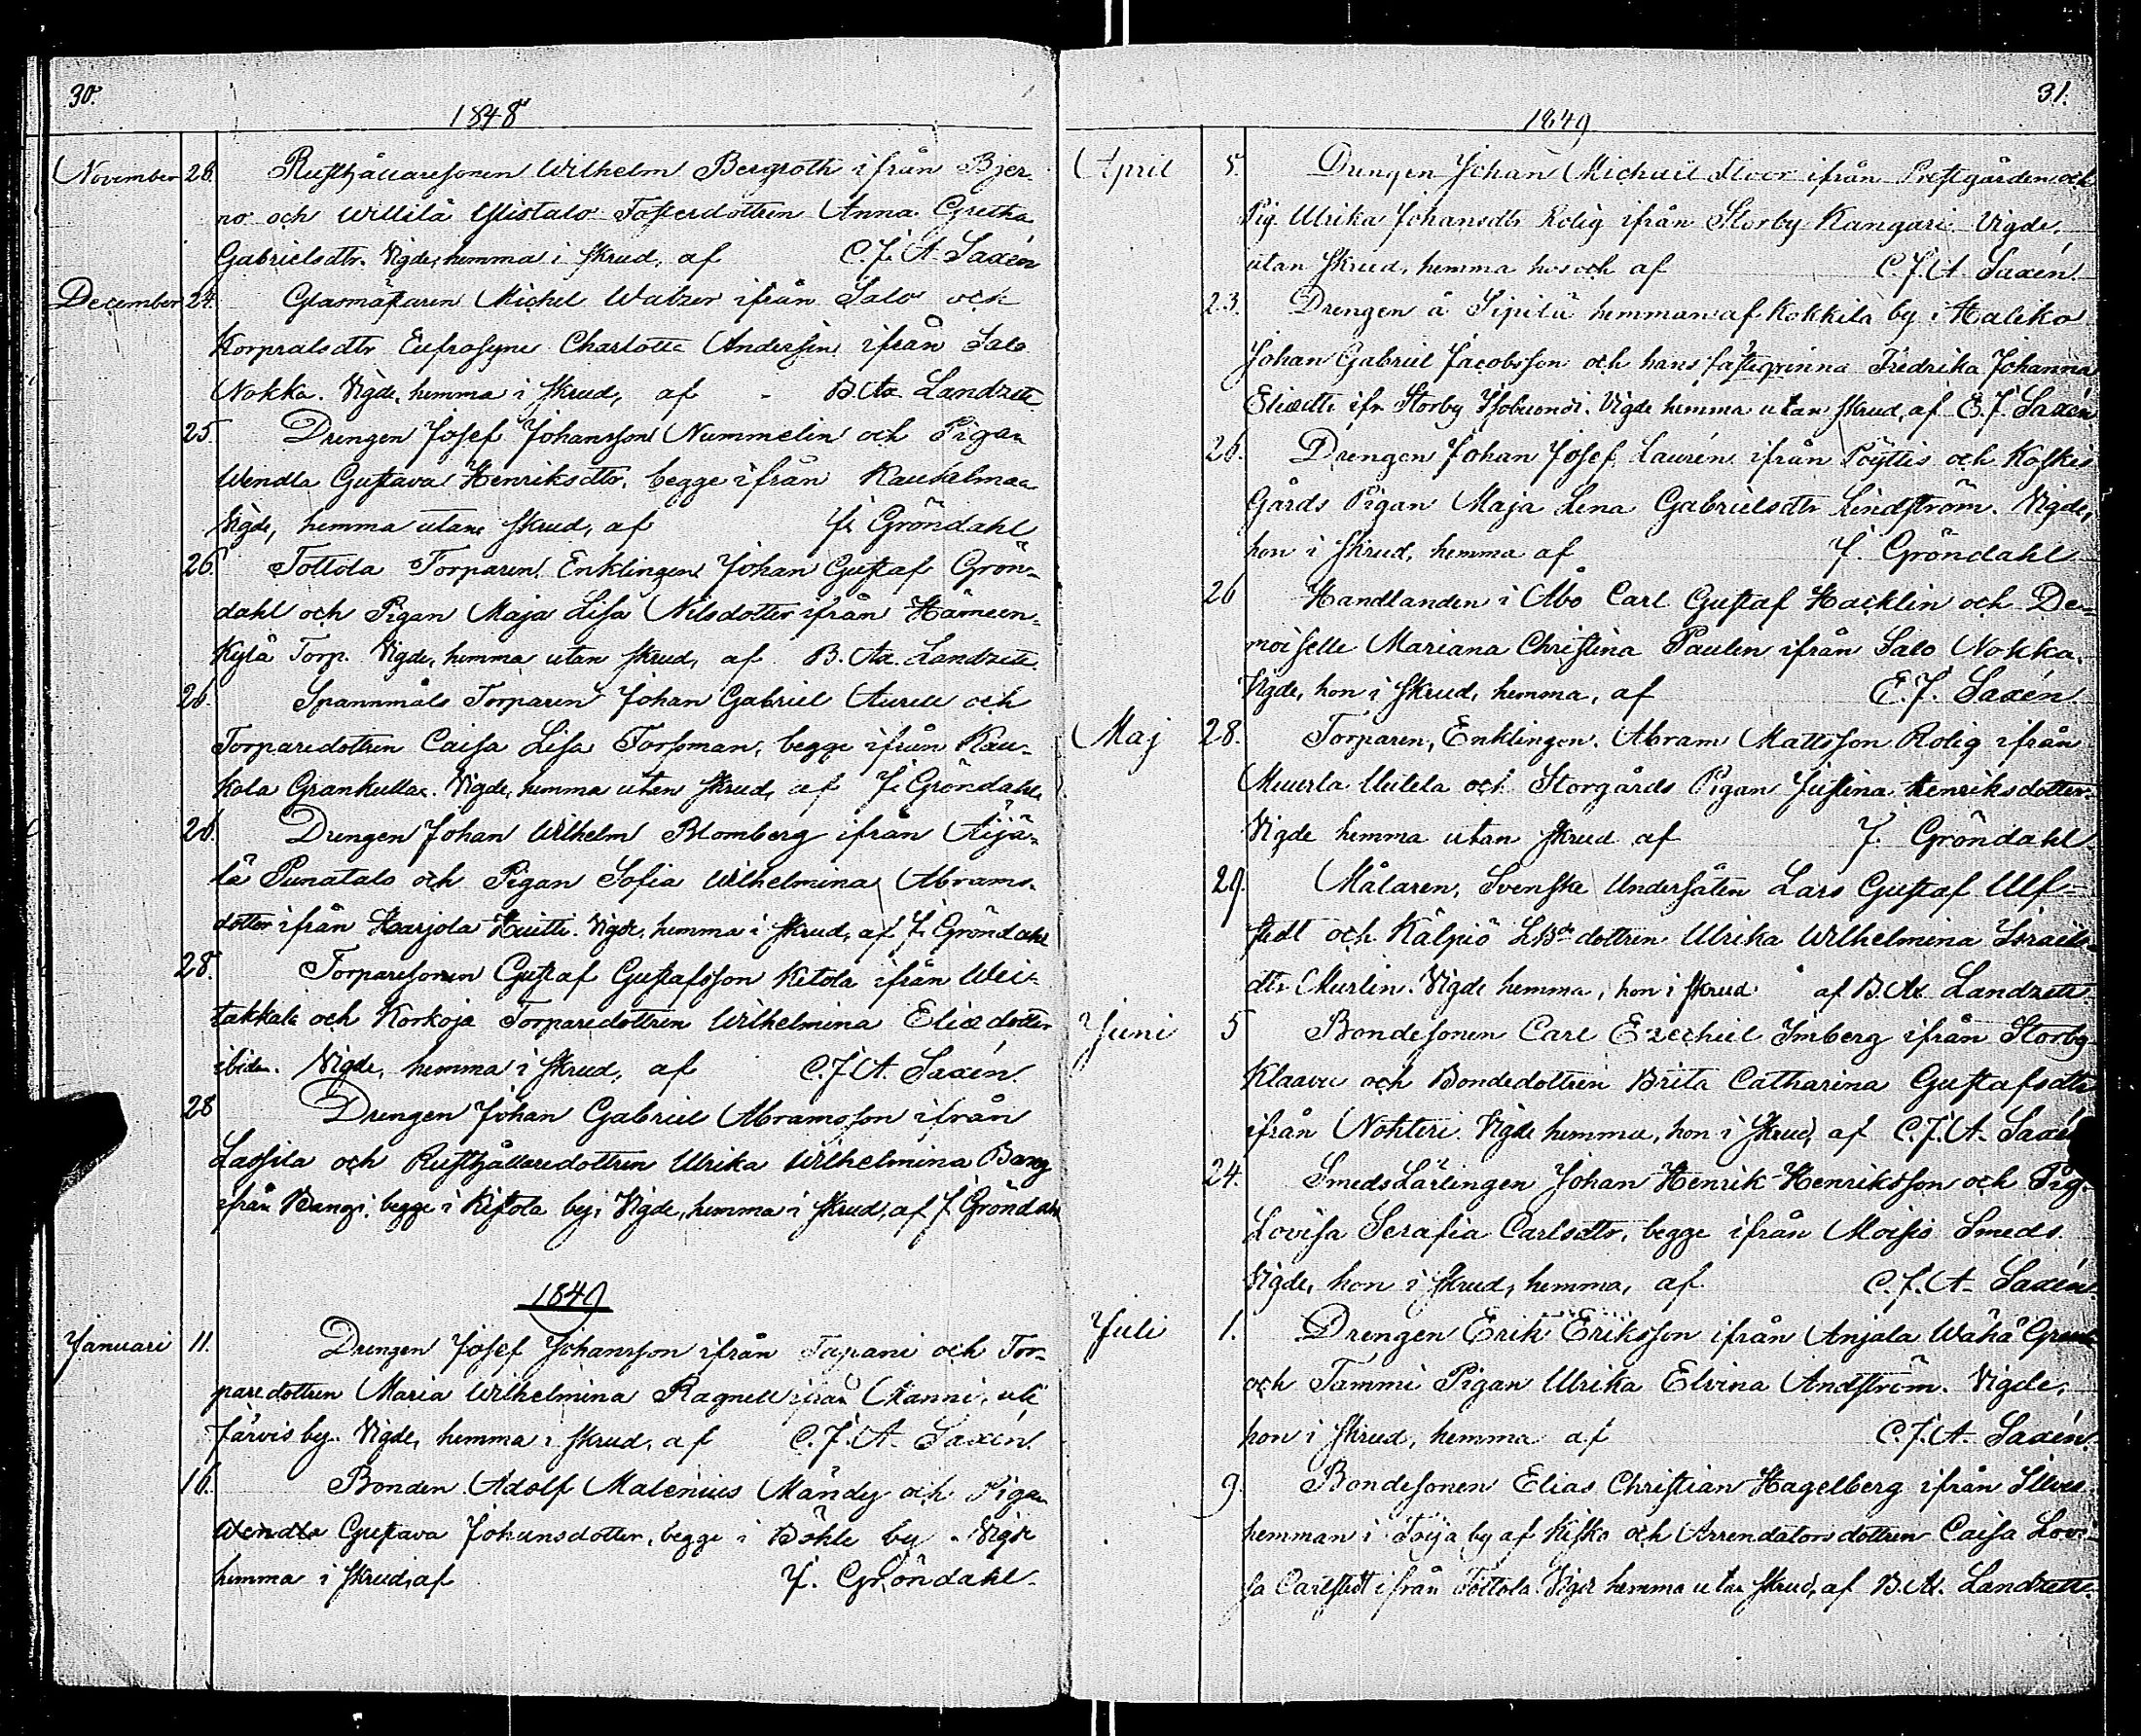 30.
1848
November 28. Rusthållaresonen Wilhelm Bergroth ifrån Bjer-
no och Willilä Ylistalo Fosterdottren Anna Gretha
Gabrielsdtr. Vigde, hemma i skrud, af C. J. A. Saxén
December 24. Glasmästaren Michel Walzer ifrån Salo och
Korpralsdtr Eufrosyne Charlotta Andersin ifrån Salo
Nokka. Vigde, hemma i skrud, af - B. Ad. Landzett
25. Drengen Josef Johansson Nummelin och Pigan
Wendla Gustava Henriksdtr, begge ifrån Kaukelmaa
Vigde, hemma utan skrud, af J. Gröndahl
26. Tottola Torparen Enklingen Johan Gustaf Grön-
dahl och Pigan Maja Lisa Nilsdotter ifrån Hämeen-
Kylä Torp. Vigde, hemma utan skrud, af B. Ad. Landzett.
26. Spannmåls Torparen Johan Gabriel Aurell och
Torparedottren Caisa Lisa Forsman, begge ifrån Kau-
kola Grankulla. Vigde, hemma utan skrud, af J. Gröndahl
26. Drengen Johan Wilhelm Blomberg ifrån Äijä-
lä Punatalo och Pigan Sofia Wilhelmina Abrams-
dotter ifrån Harjola Huitti. Vigde, hemma i skrud, af J. Gröndahl
28. Torparesonen Gustaf Gustafsson Ketola ifrån Wei-
takkala och Korkoja Torparedottren Wilhelmina Eliædotter
ibidem. Vigde, hemma i skrud, af C. J. A. Saxén.
28 Drengen Johan Gabriel Abramsson ifrån
Lassila och Rusthållaredottren Ulrika Wilhelmina Bang
ifrån Bangi, begge i Kistola by. Vigde, hemma i skrud, af J. Gröndahl
1849
Januari 11. Drengen Josef Johansson ifrån Tapani och Tor-
paredottren Maria Wilhelmina Ragnell ifrån
Järvis by. Vigde, hemma i skrud, af C. J. A. Saxén.
16. Bonden Adolf Malenius Mändy och Pigan
Wendla Gustava Johansdotter, begge i Böhle by. Vigde
hemma i skrud, af J. Gröndahl.
31.
1849
April 5. Drengen Johan Michaël Stoor ifrån Prestgården och
Pig. Ulrika Johansdtr Rolig ifrån Storby Kangari. Vigde,
utan skrud, hemma hos och af C. J. A. Saxén.
23. Drengen å Sipilä hemman af Kokkila by i Haliko
Johan Gabriel Jacobsson och hans fästeqvinna Fredrika Johanna
Eliædtr ifr. Storby. Vigde hemma utan skrud, af C. J. Saxén
26. Drengen Johan Josef Laurén ifrån Pöyttis och Koskis
Gårds Pigan Maja Lena Gabrielsdtr Lindström. Vigde,
hon i skrud, hemma af J. Gröndahl
26 Handlanden i Åbo Carl Gustaf Hacklin och De-
moiselle Mariana Christina Paulin ifrån Salo Nokka.
Vigde, hon i skrud, hemma, af E. J. Saxén.
Maj 28. Torparen, Enklingen Abram Mattsson Rolig ifrån
Muurla Ulilela och Storgårds Pigan Justina Henriksdotter.
Vigde hemma utan skrud af J. Gröndahl.
29. Målaren, Svenske Undersåten Lars Gustaf Ulf-
stedt och Kälpiö LBde dottren Ulrika Wilhelmina Israels-
dtr Murlin. Vigde hemma, hon i skrud af B. Ad. Landzett.
Juni 5 Bondesonen Carl Ezechiel Imberg ifrån Storby
Klaavu och Bondedottren Brita Catharina Gustafsdtr
ifrån Nohteri. Vigde hemma, hon i skrud, af C. J. A. Saxén
24. SmedsLärlingen Johan Henrik Henriksson och Pig.
Lovisa Serafia Carlsdtr, begge ifrån Moisio Smeds.
Vigde, hon i skrud, hemma, af C. J. A. Saxén.
Juli 1. Drengen Erik Eriksson ifrån Anjala Wähä
och Tammi Pigan Ulrika Elvina Andström. Vigde,
hon i skrud, hemma af C. J. A. Saxén.
9. Bondesonen Elias Christian Hagelberg ifrån
hemman i Toija by af Kisko och Arrendators dottren Caisa Lovi-
sa Carlstedt ifrån Tottola. Vigde hemma utan skrud, af B. Ad. Landzett.